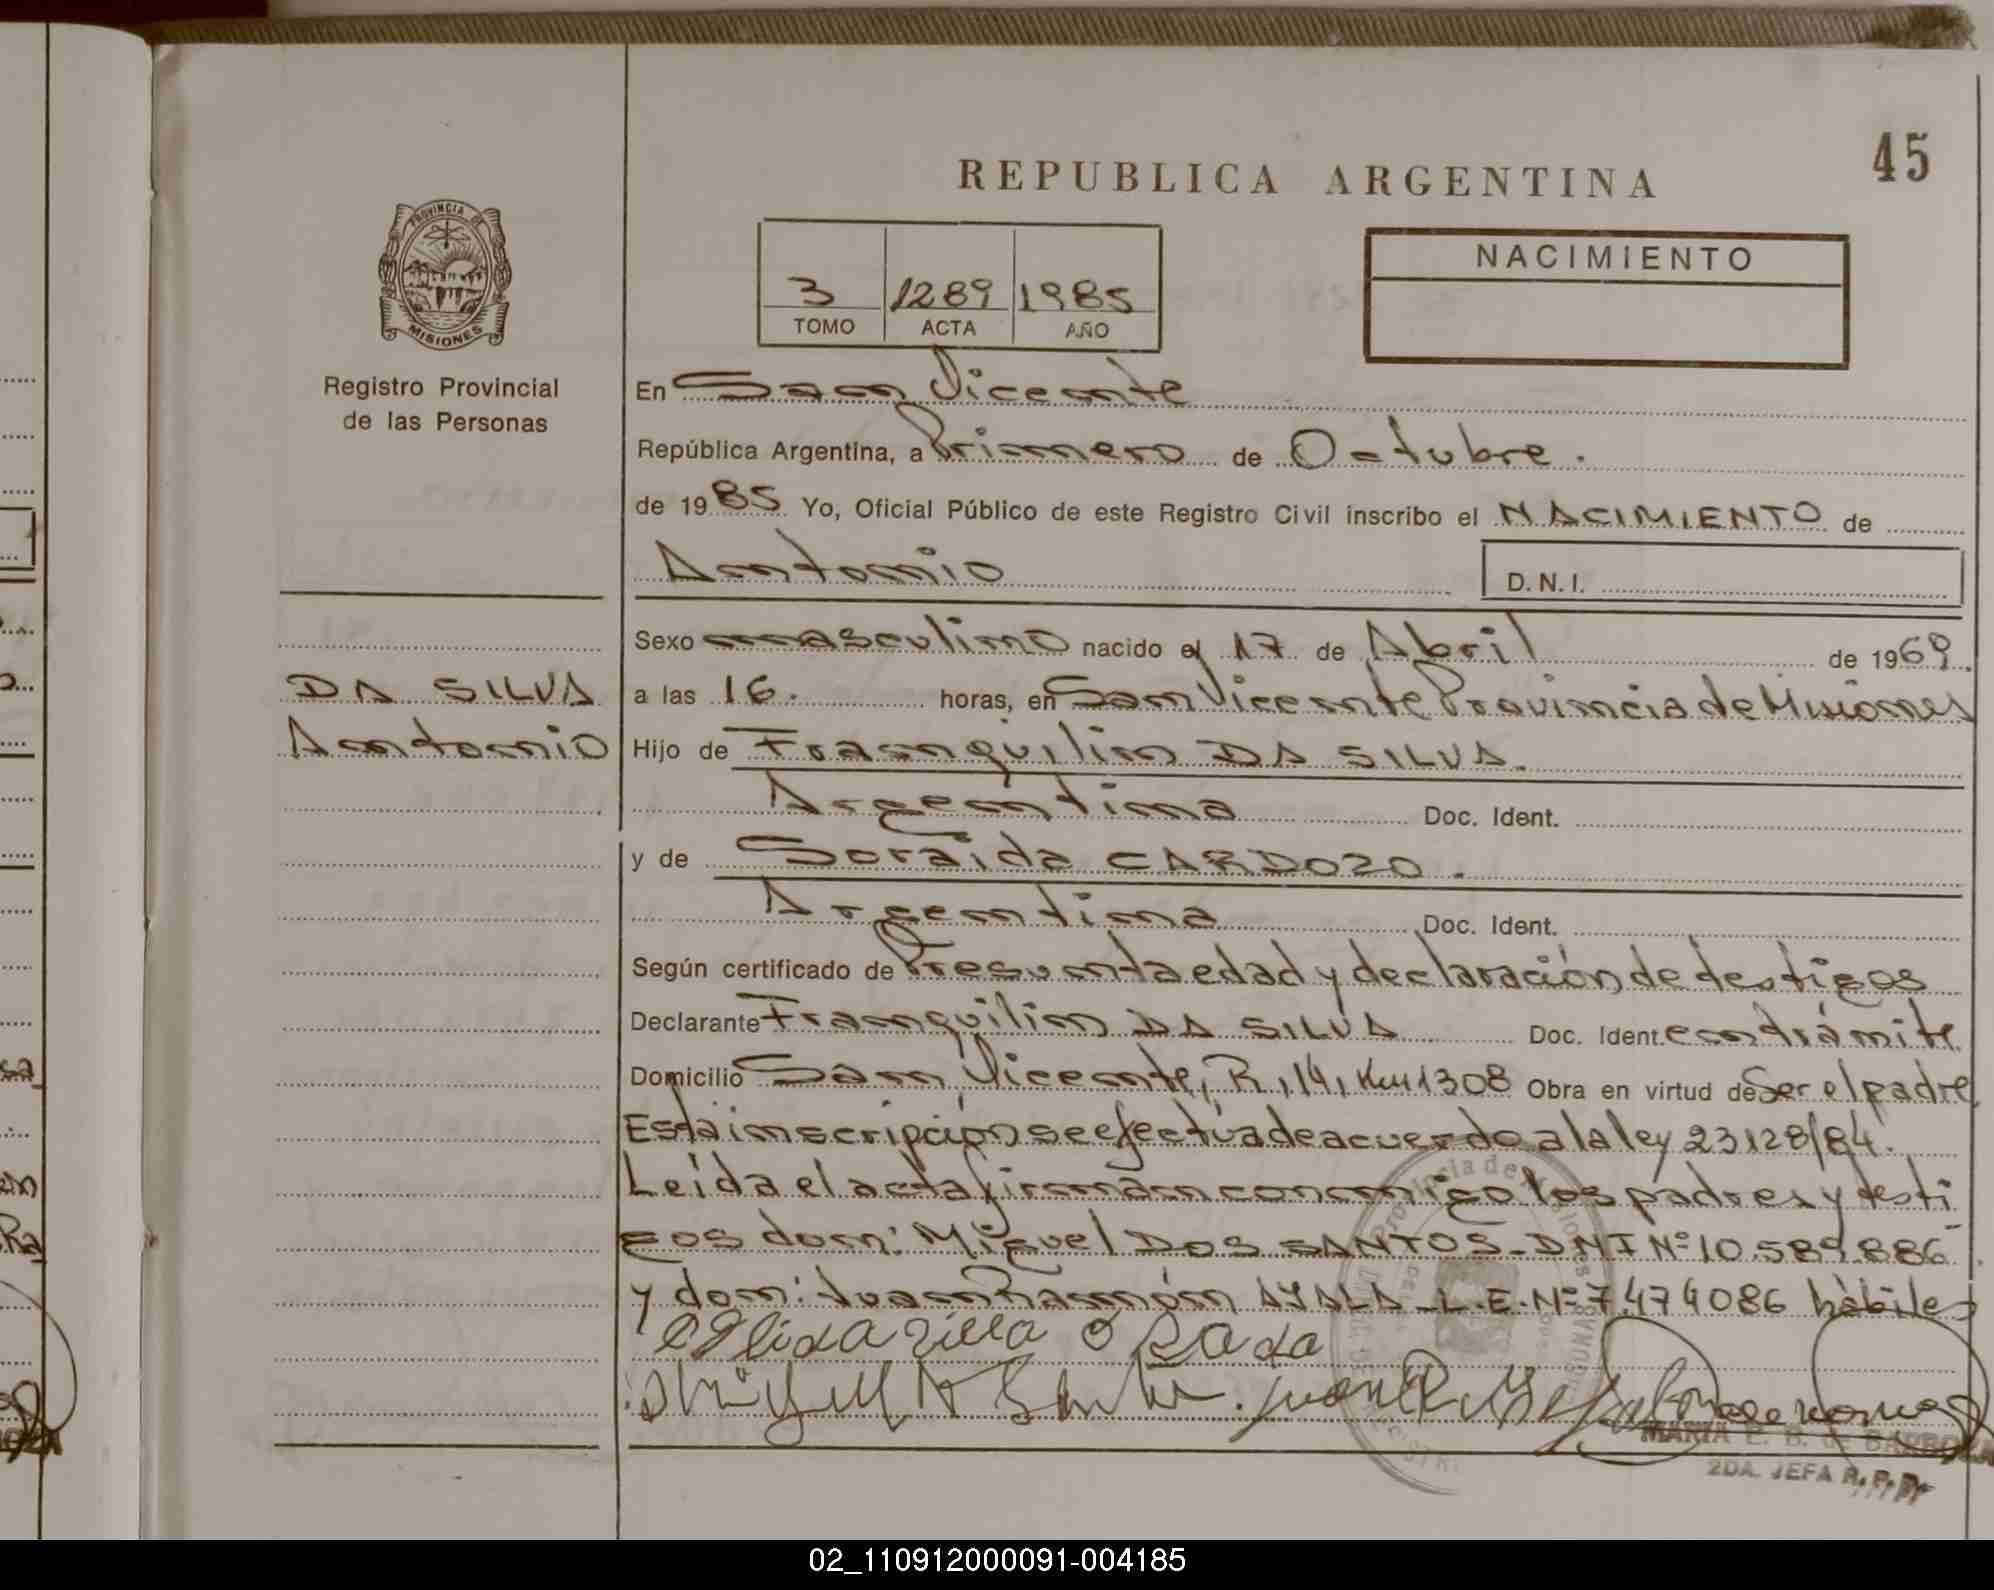 45
REPUBLICA ARGENTINA
NACIMIENTO
3 1289 1985
TOMO ACTA AÑO
PROVINCIA DE
MISIONES
Registro Provincial
de las Personas
En San Vicente
República Argentina, a Primero de Octubre.
de 1985 Yo, Oficial Público de este Registro Civil inscribo el NACIMIENTO de
Antonio D.N.I.
Sexo masculino nacido el 17 de Abril de 1969
DA SILVA
Antonio
a las 16. horas, en San Vicente Provincia de Misiones
Hijo de Franquilin DA SILVA.
Argentina Doc. Ident.
y de Soraida CARDOZO.
Argentina Doc. Ident.
Según certificado de Presunta edad y declaración de testigos
Declarante Franquilin DA SILVA Doc. Ident. en trámite
Domicilio San Vicente, R, 14, Km 1308 Obra en virtud de Ser el padre
Esta inscripción se efectúa de acuerdo a la ley 23128/84.
Leída el acta firman conmigo los padres y testi
gos don: Miguel DOS SANTOS - DNI Nº 10.589.886
y don: Juan Ramón AYALA L.E. Nº 7.474086 hábiles
MARIA E. B. de BARBOZA
2DA. JEFA R. P. P.
02_110912000091-004185